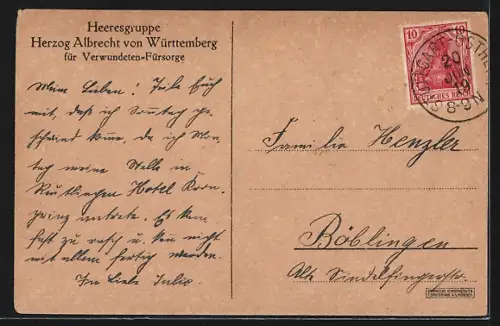 Heeresgruppe
Herzog Albrecht von Württemberg
für Verwundeten-Fürsorge
Meine Lieben! Teile Euch
mit, daß ich Sonntag
kann, da ich Mon-
tag meine Stelle in
Reutlingen Hotel Kron-
prinz antrete. Es kam
fast zu rasch u. kann nicht
mit allem fertig werden.
In Liebe Julie.
10 10
DEUTSCHES REICH
STUTTGART
20
8-9 N
Familie Henzler
Böblingen
Alte Sindelfingerstr.